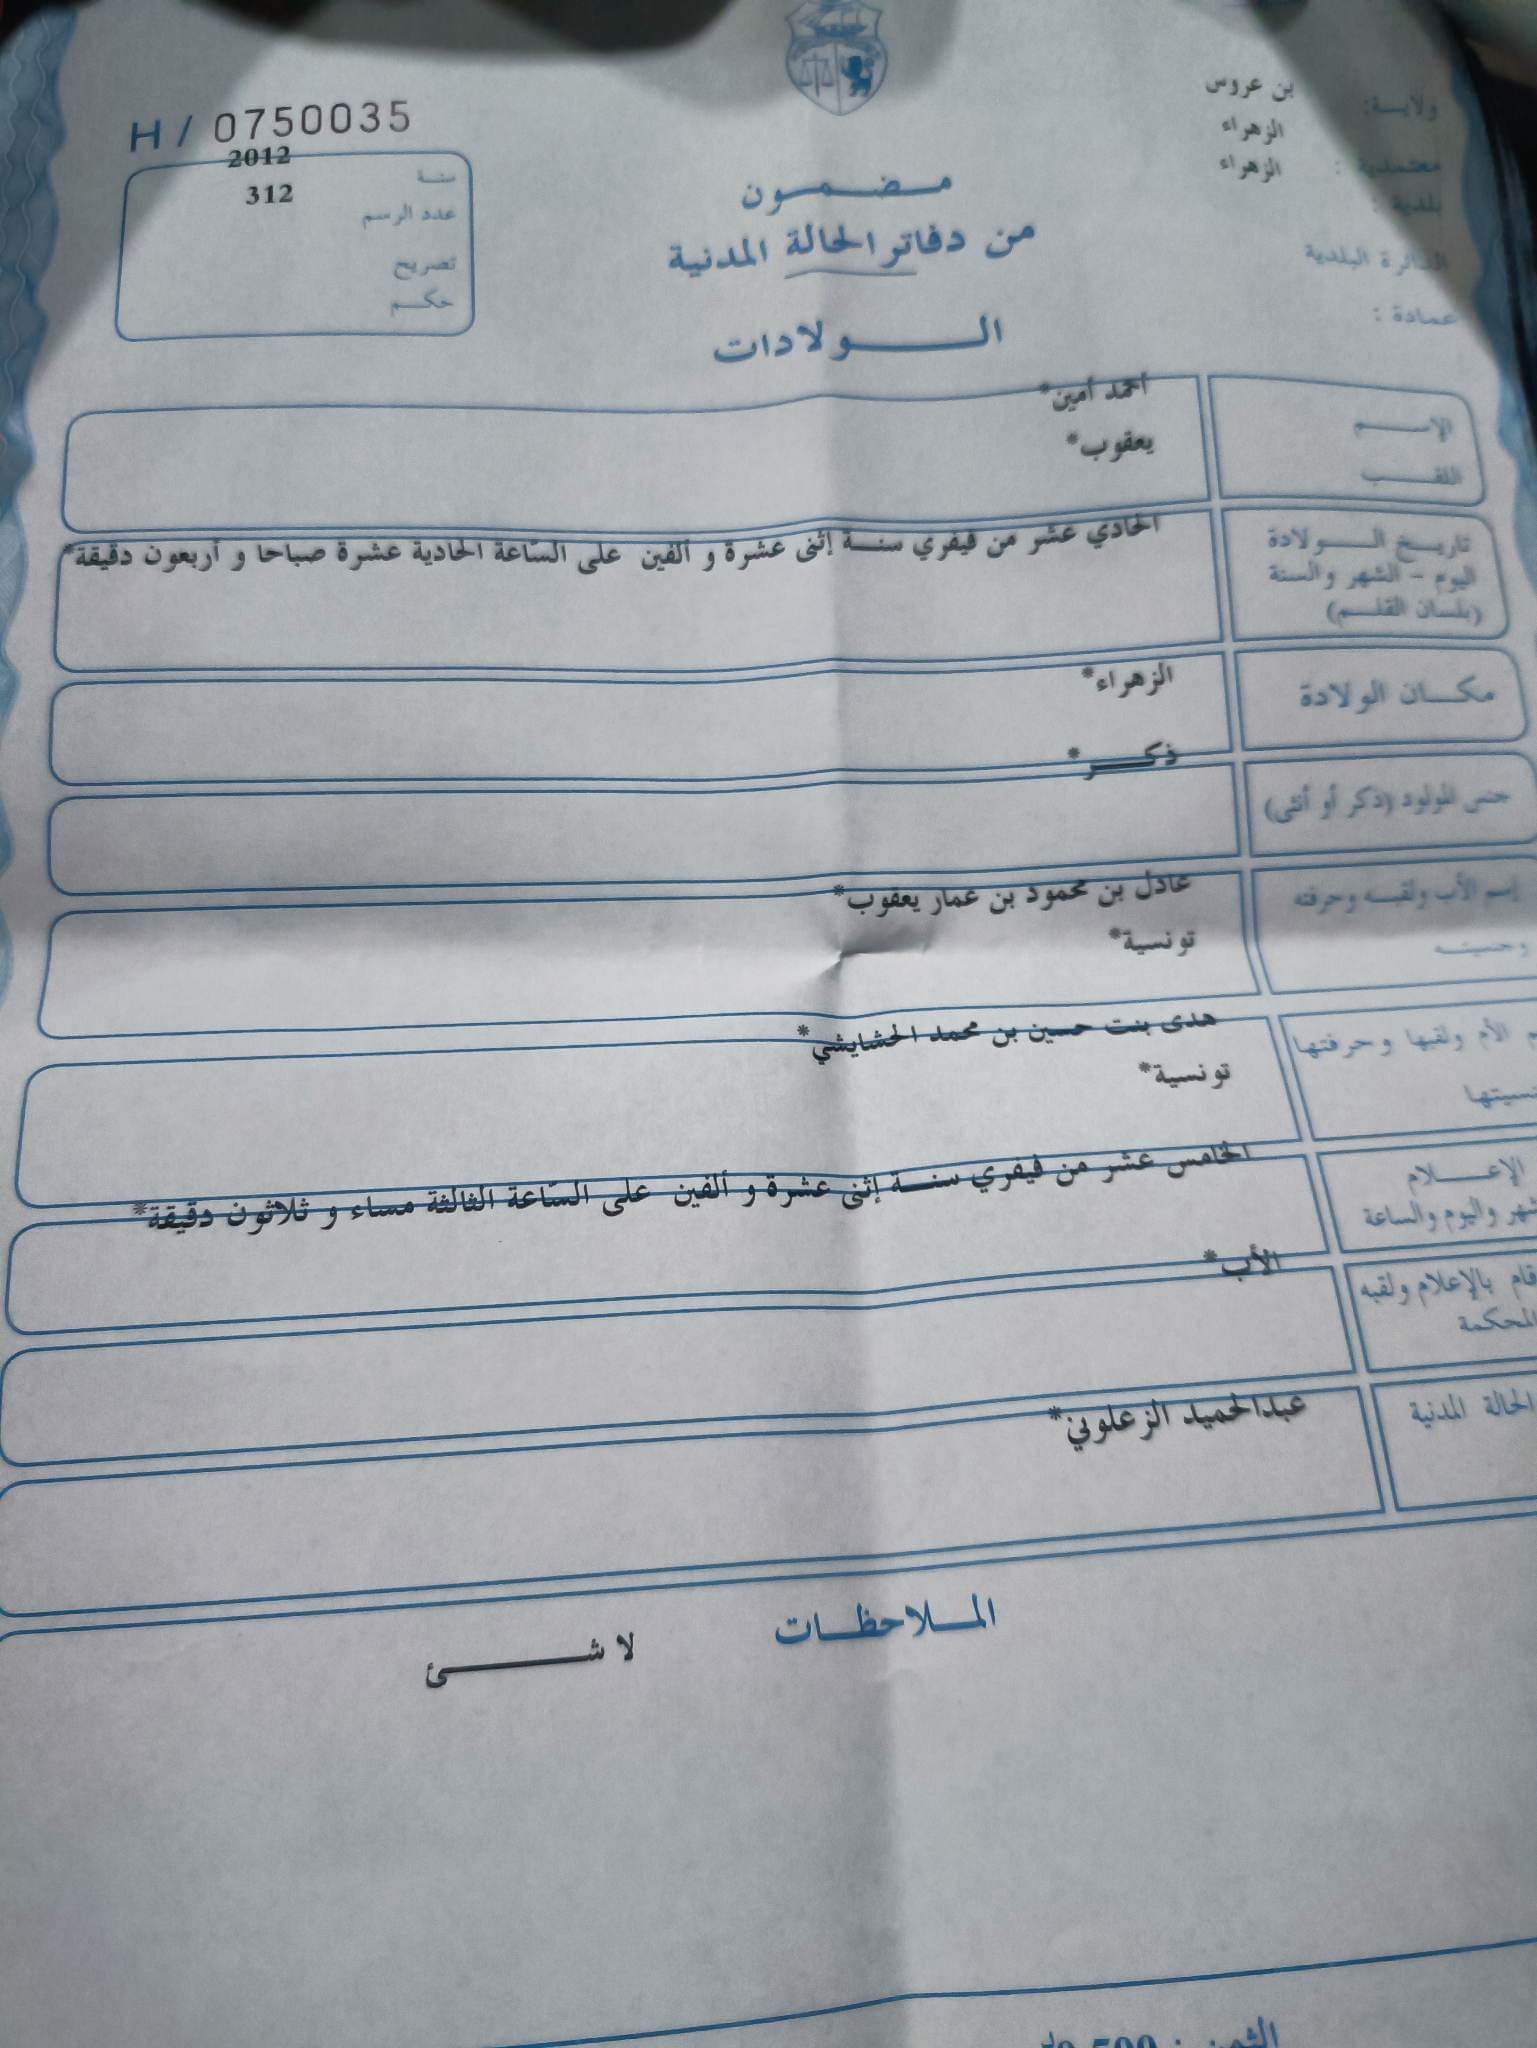 ولاية: بن عروس
معتمدية : الزهراء
بلدية : الزهراء
الدائرة البلدية
عمادة :
H / 0750035
سنة 2012
عدد الرسم 312
تصريح
حكم
مضمون
من دفاتر الحالة المدنية
الولادات
الإسم أحمد أمين*
اللقب يعقوب*
تاريخ الولادة
اليوم - الشهر والسنة
(بلسان القلم)
الحادي عشر من فيفري سنة إثنى عشرة و ألفين على السّاعة الحادية عشرة صباحا و أربعون دقيقة*
مكان الولادة الزهراء*
جنس المولود (ذكر أو أنثى) ذكر*
إسم الأب ولقبه وحرفته عادل بن محمود بن عمار يعقوب*
وجنسيته تونسية*
الأم ولقبها وحرفتها هدى بنت حسين بن محمد الحشايشي*
تونسية*
الإعلام
والشهر واليوم والساعة
الخامس عشر من فيفري سنة إثنى عشرة و ألفين على السّاعة الثالثة مساء و ثلاثون دقيقة*
قام بالإعلام ولقبه
المحكمة
الأب*
الحالة المدنية عبدالحميد الزعلوني*
الملاحظات
لا شئ
الثمن :